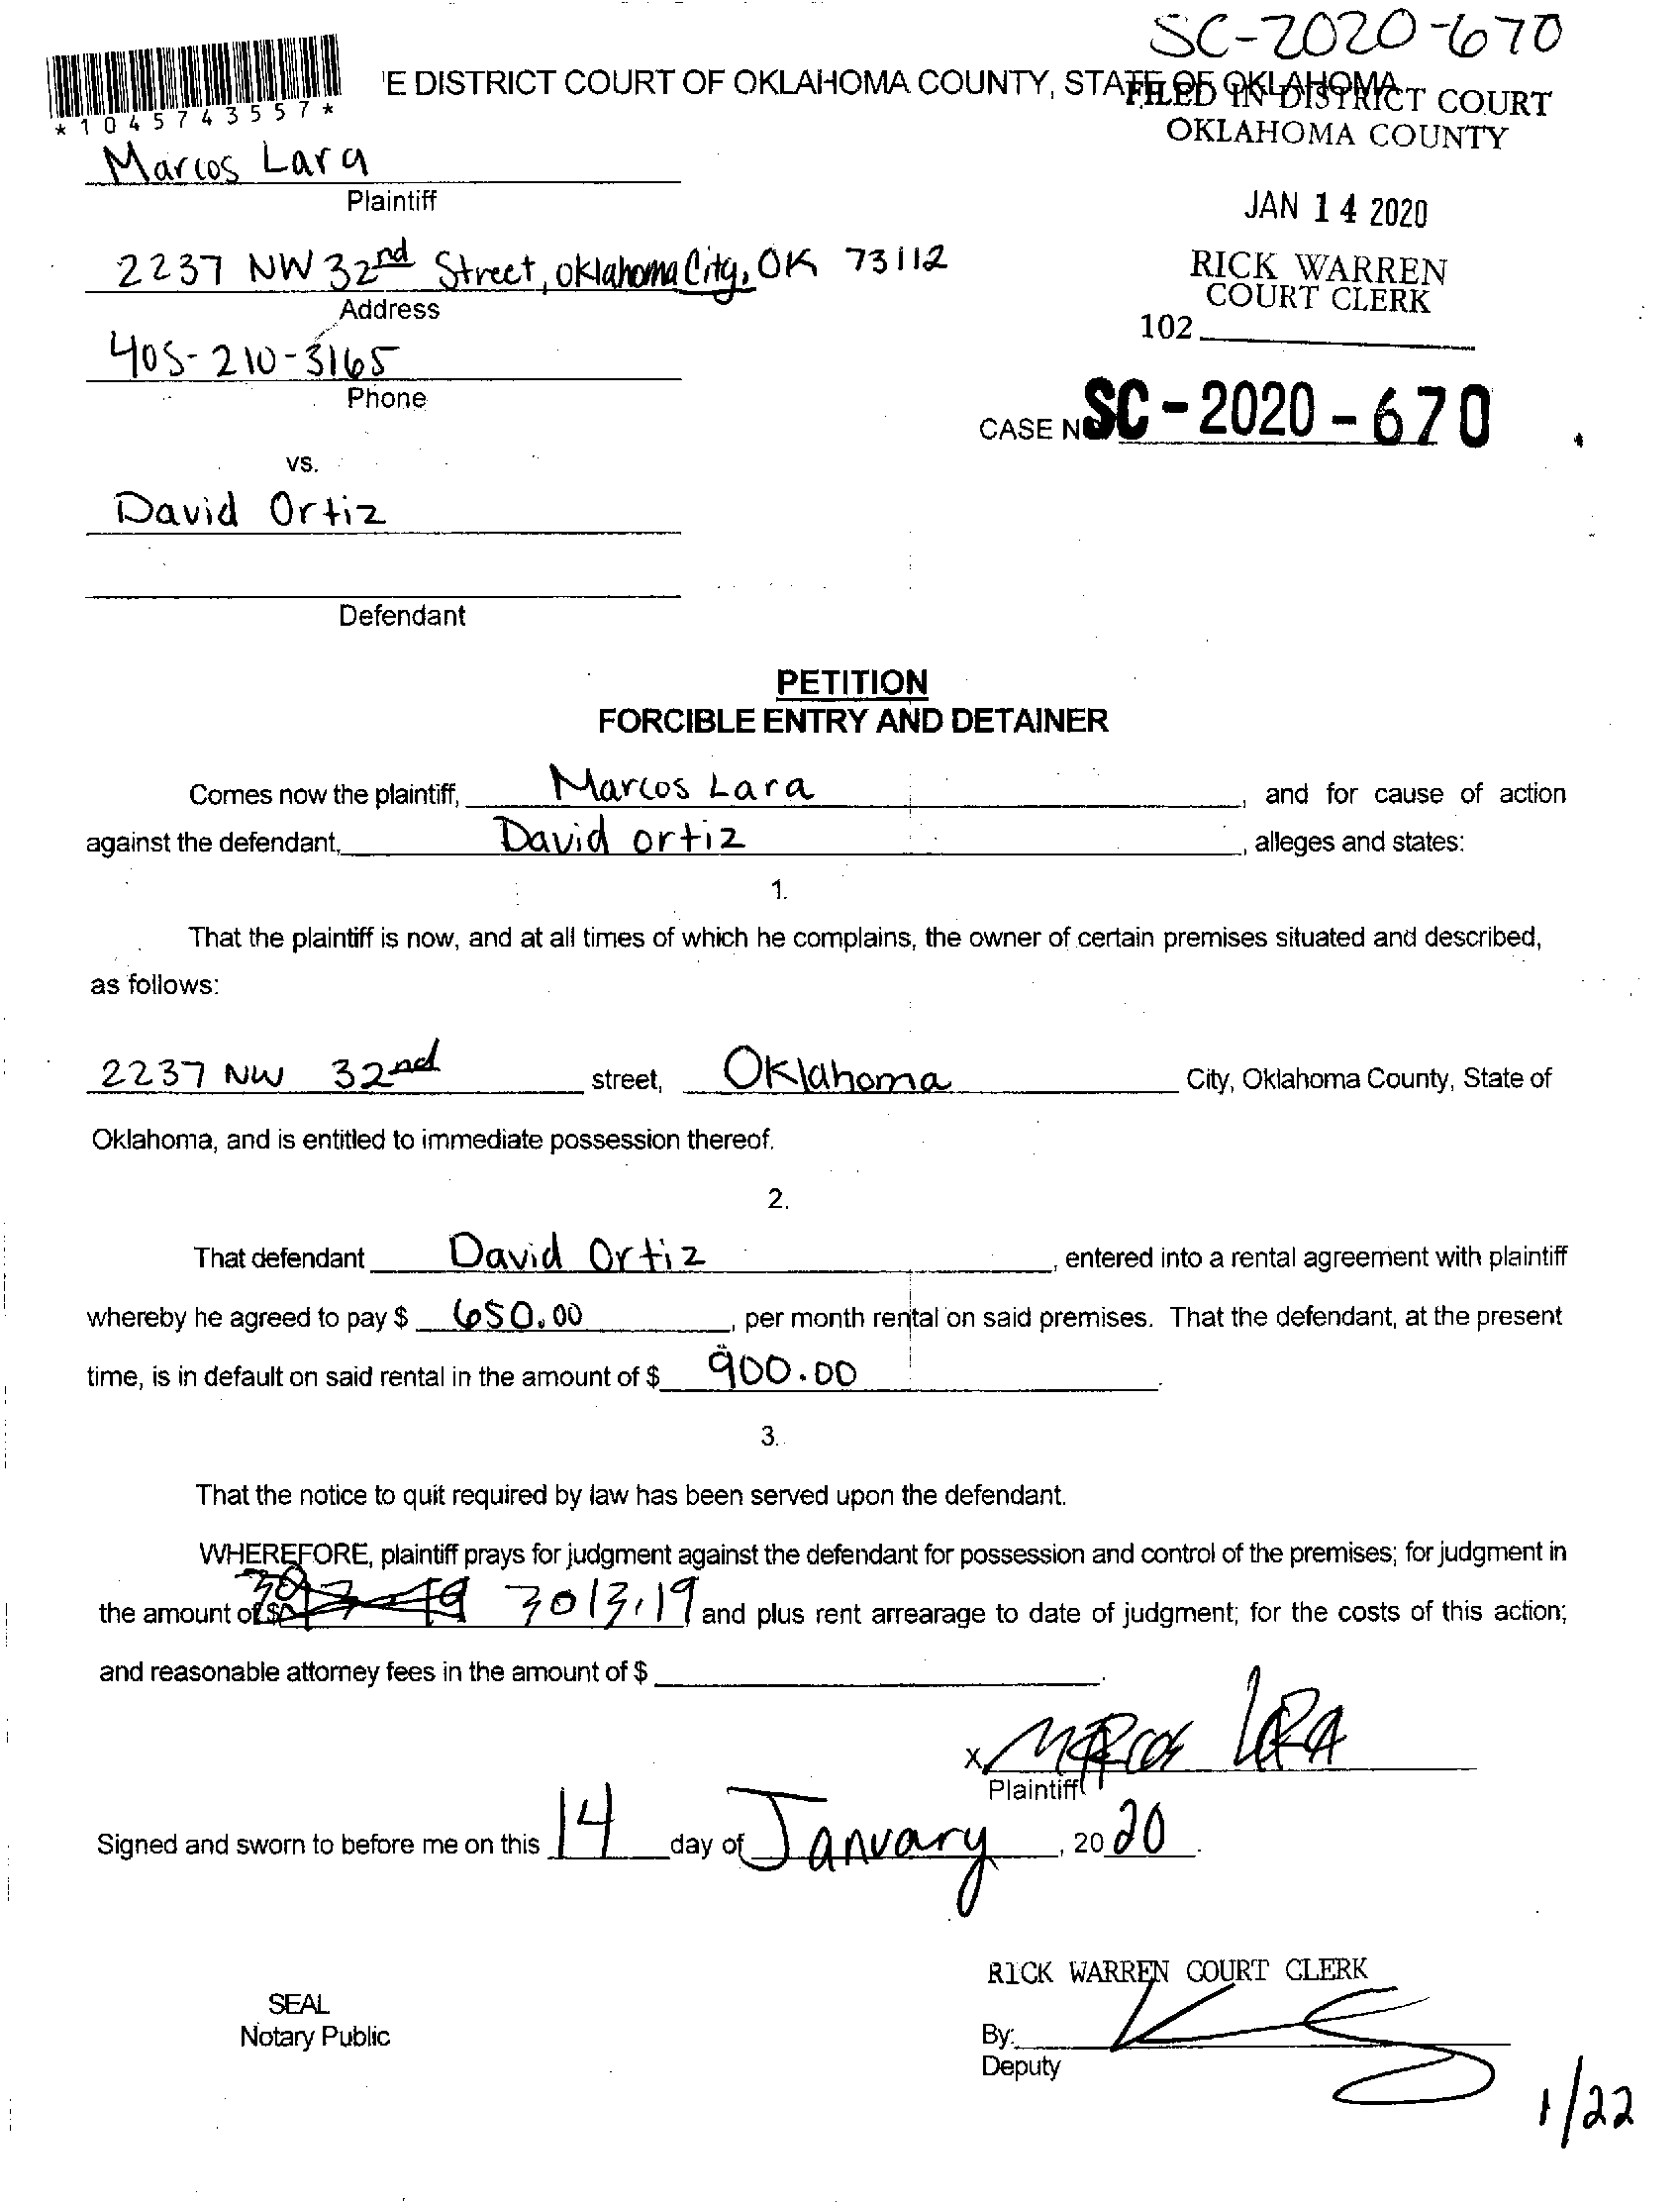 SC-2020-670
'E DISTRICT COURT OF OKLAHOMA COUNTY, STATE OF OKLAHOMA
FILED IN DISTRICT COURT
OKLAHOMA COUNTY
*1045743557*
Marcos Lara
Plaintiff
JAN 14 2020
2237 NW 32nd Street, Oklahoma City, OK 73112
Address
RICK WARREN
COURT CLERK
102
405-210-3165
Phone
CASE NO SC-2020-670
vs.
David Ortiz
Defendant
PETITION
FORCIBLE ENTRY AND DETAINER
Comes now the plaintiff, Marcos Lara, and for cause of action
against the defendant, David ortiz, alleges and states:
1.
That the plaintiff is now, and at all times of which he complains, the owner of certain premises situated and described,
as follows:
2237 NW 32nd street, Oklahoma City, Oklahoma County, State of
Oklahoma, and is entitled to immediate possession thereof.
2.
That defendant David Ortiz, entered into a rental agreement with plaintiff
whereby he agreed to pay $ 650.00, per month rental on said premises. That the defendant, at the present
time, is in default on said rental in the amount of $ 900.00.
3.
That the notice to quit required by law has been served upon the defendant.
WHEREFORE, plaintiff prays for judgment against the defendant for possession and control of the premises; for judgment in
the amount of $ 3013.19 and plus rent arrearage to date of judgment; for the costs of this action;
and reasonable attorney fees in the amount of $ .
X Marcos LARA
Plaintiff
Signed and sworn to before me on this 14 day of January, 2020.
RICK WARREN COURT CLERK
SEAL
Notary Public
By:
Deputy
1/22